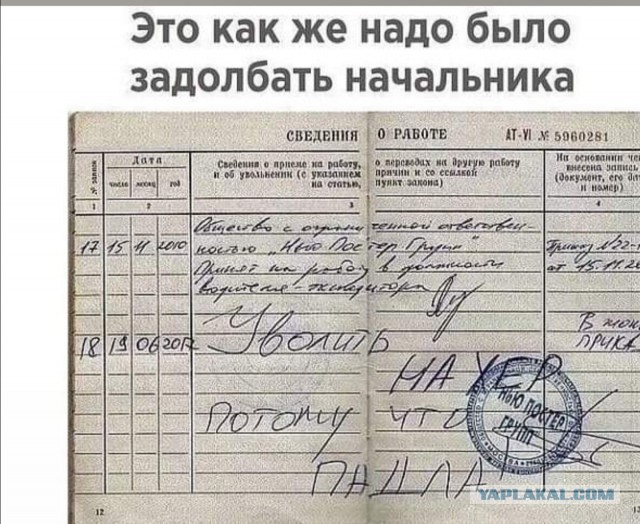 Это как же надо было
задолбать начальника
СВЕДЕНИЯ О РАБОТЕ АТ-VI № 5960281
№ записи
Дата
число месяц год
Сведения о приеме на работу, о переводах на другую работу
и об увольнении (с указанием причин и со ссылкой
на статью, пункт закона)
На основании чег
внесена запись
(документ, его да
и номер)
1 2 3 4
Общество с ограниченной ответствен-
17 15 11 2010 ностью „Нью Постер Групп“ Приказ №22-
Принят на работу в должности от 15.11.20
водителя-экспедитора
18 19 06 2012 Уволить
ПРИКА
НАХЕР
ПОТОМУ ЧТО
ПАДЛА
НЬЮ ПОСТЕР
ГРУПП
МОСКВА
YAPLAKAL.COM
12